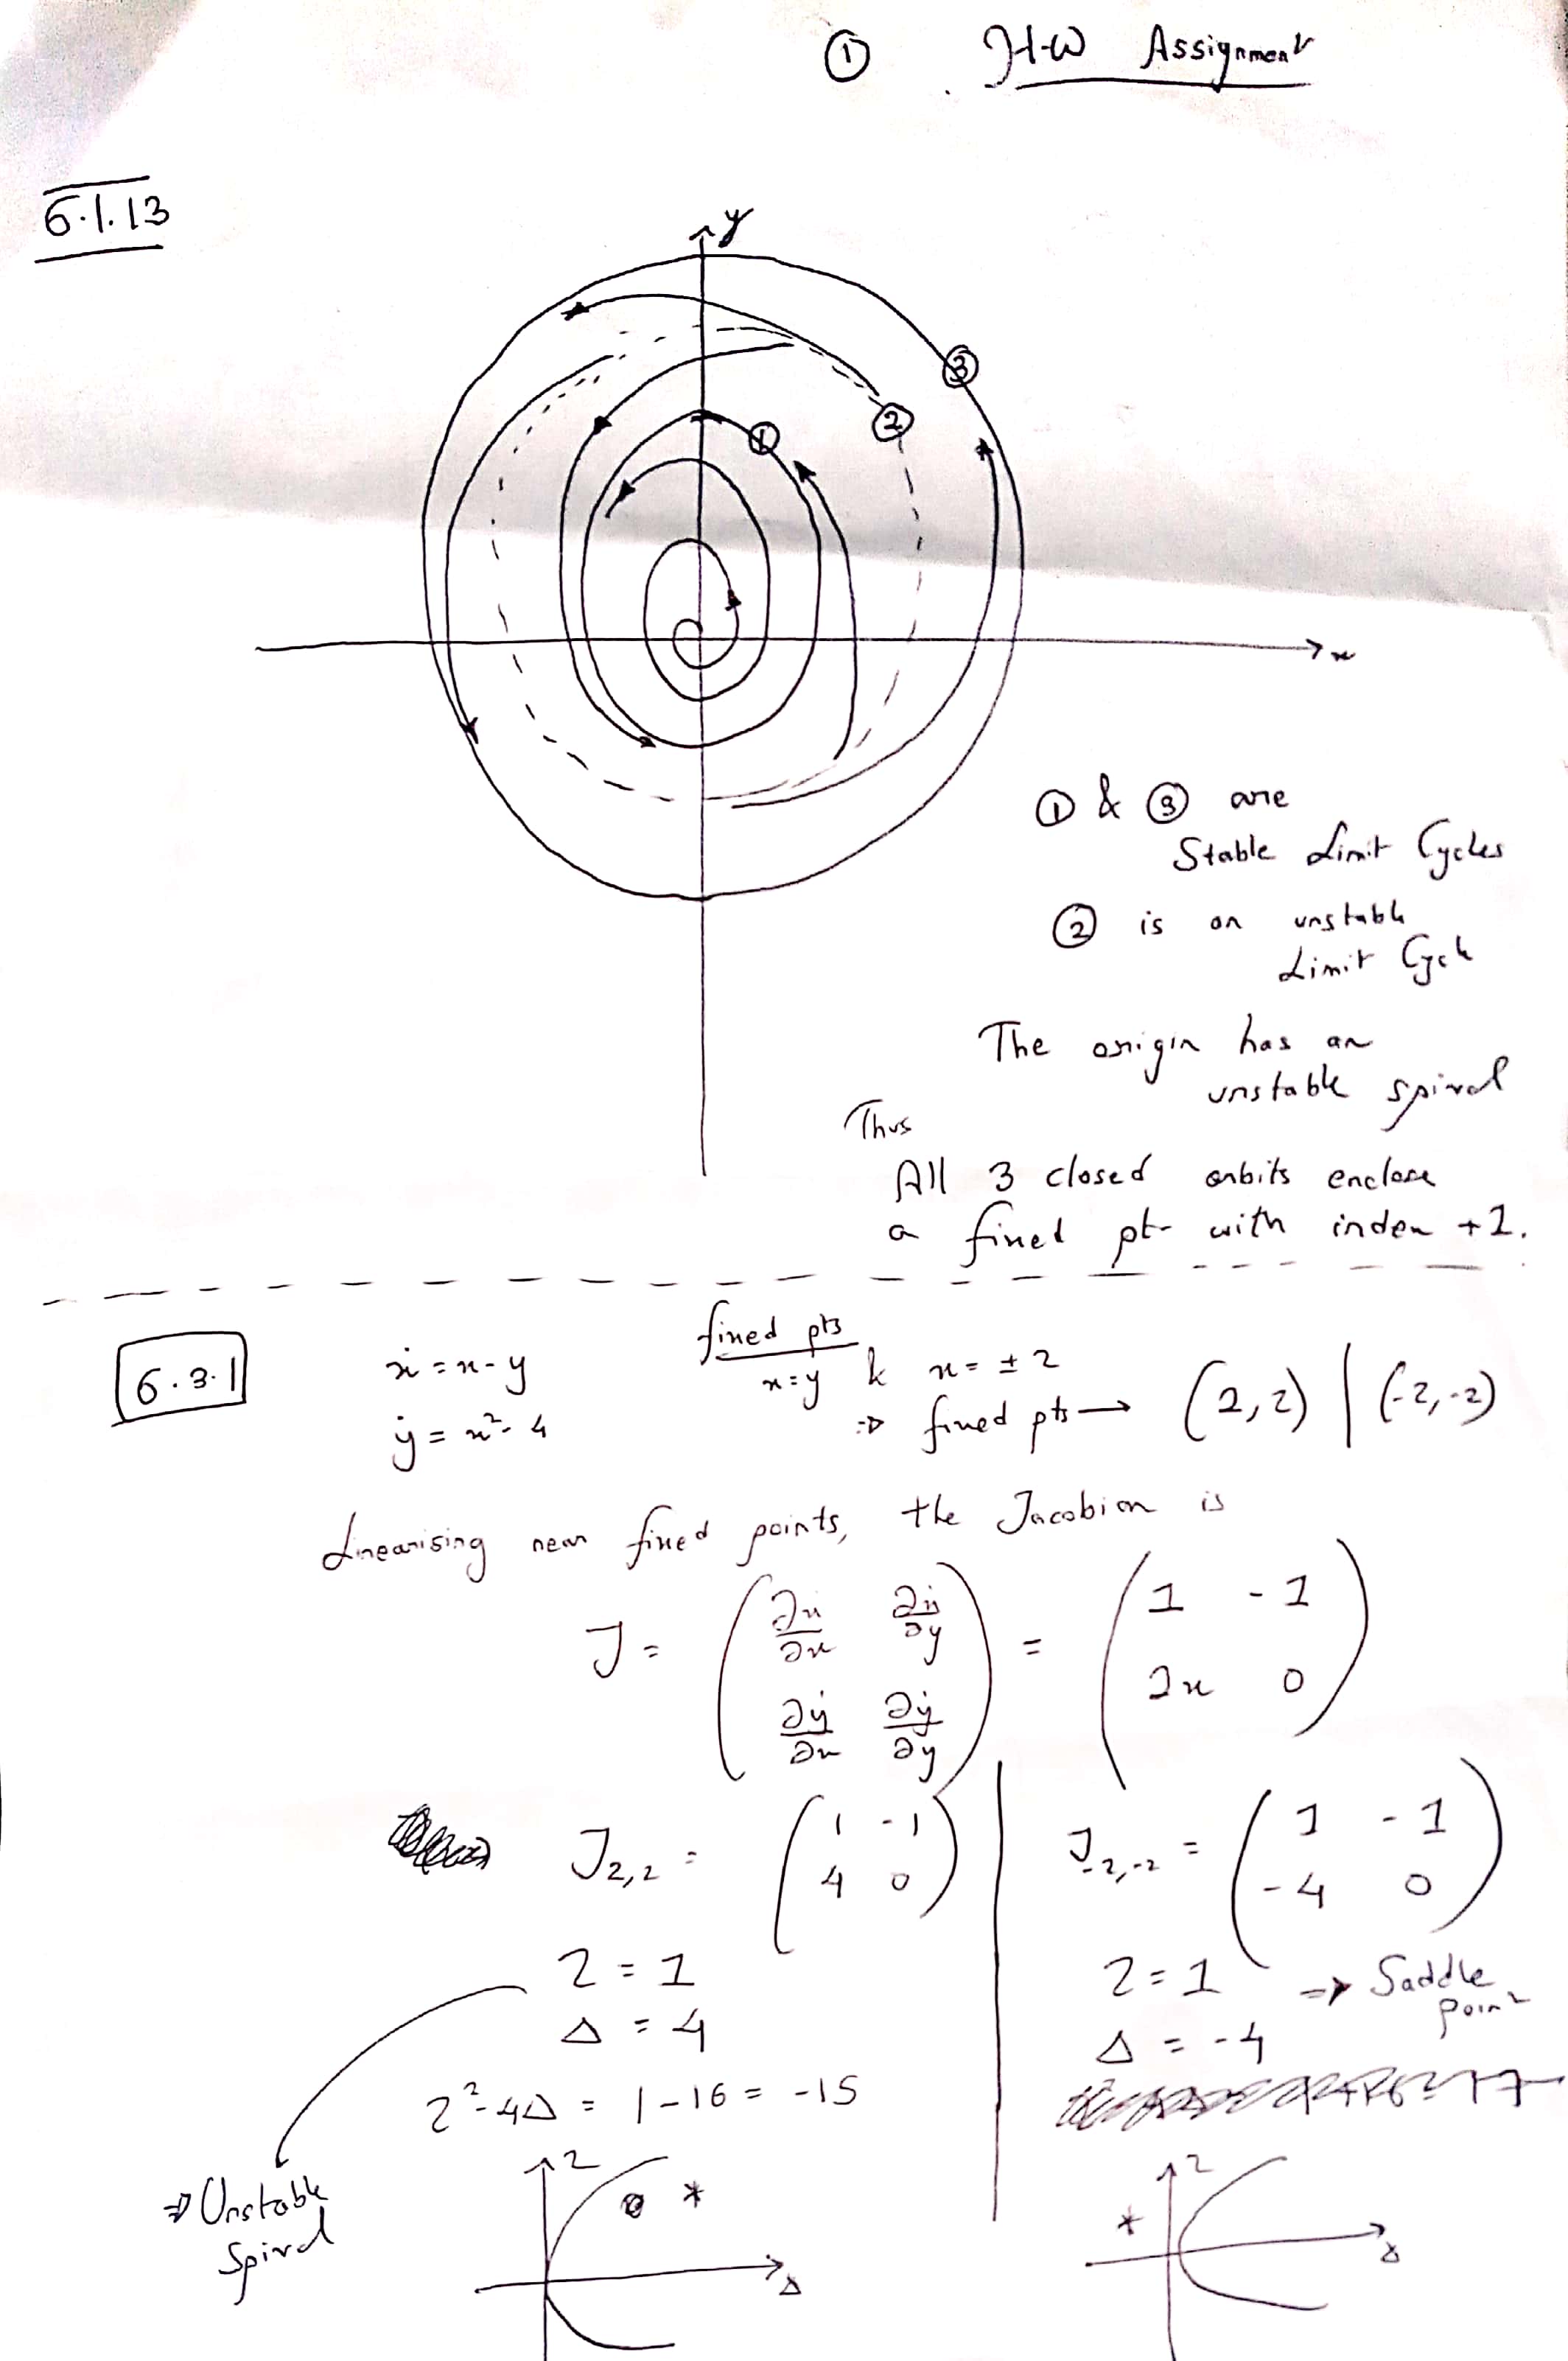 ① H.W Assignment
6.1.13
y
③
②
①
x
① & ③ are
Stable Limit Cycles
② is an unstable
Limit Cycle
The origin has an
unstable spiral
Thus
All 3 closed orbits enclose
a fixed pt. with index +1.
6.3.1
ẋ = x - y
ẏ = x² - 4
fixed pts
x = y & x = ± 2
⇒ fixed pts → (2,2) | (-2,-2)
Linearising near fixed points, the Jacobian is
J = ( ∂ẋ/∂x ∂ẋ/∂y ) = ( 1 -1 )
( ∂ẏ/∂x ∂ẏ/∂y ) ( 2x 0 )
J2,2 = ( 1 -1 )
( 4 0 )
τ = 1
Δ = 4
τ² - 4Δ = 1 - 16 = -15
⇒ Unstable
Spiral
τ
Δ
J-2,-2 = ( 1 -1 )
( -4 0 )
τ = 1 ⇒ Saddle
point
Δ = -4
τ
Δ